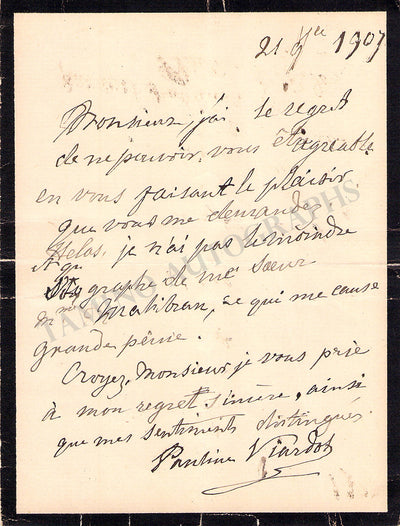 21 9bre 1907
Monsieur, j'ai le regret
de ne pouvoir vous être agréable
en vous faisant le plaisir
que vous me demandez.
Helas, je n'ai pas le moindre
graphe de ma sœur
Mme Malibran, ce qui me cause
grande peine.
Croyez, Monsieur je vous prie
à mon regret sincère, ainsi
que mes sentiments distingués.
Pauline Viardot
TAMINO AUTOGRAPHS